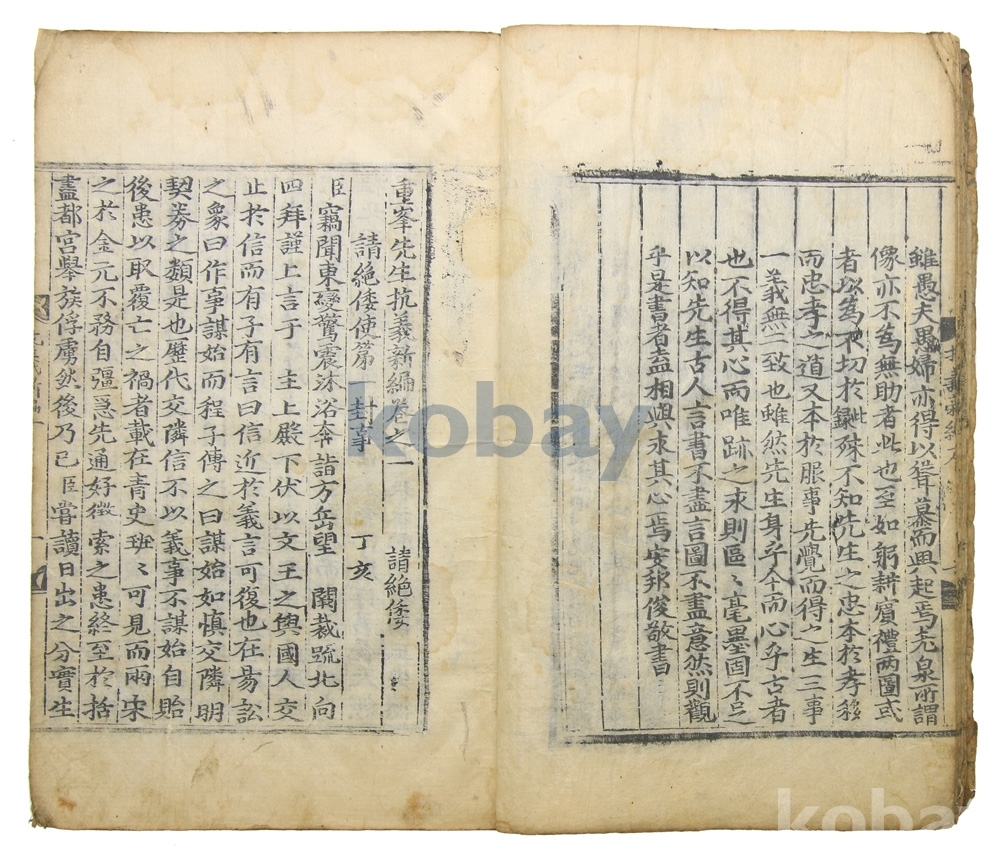 雖愚夫愚婦亦得以聳慕而興起焉尤泉所謂
像亦不爲無助者此也至如躬耕賓禮兩圖或
者以爲不切於錄殊不知先生之忠本於孝移
而忠孝之道又本於服事先覺而得之生三事
一義無二致也雖然先生身乎今而心乎古者
也不得其心而唯跡之求則區〻毫墨固不足
以知先生古人言書不盡言圖不盡意然則觀
乎是書者盍相與求其心焉安邦俊敬書
重峯先生抗義新編卷之一 請絕倭
請絕倭使第一封事 丁亥
臣竊聞東變驚震沐浴奔詣方岳望 闕裁疏北向
四拜謹上言于 主上殿下伏以文王之與國人交
止於信而有子有言曰信近於義言可復也在易訟
之象曰作事謀始而程子傳之曰謀始如愼交隣明
契券之類是也歷代交隣信不以義事不謀始自貽
後患以取覆亡之禍者載在靑史班〻可見而兩宋
之於金元不務自彊爲先通好徵索之患終至於括
盡都宮擧族俘虜然後乃已臣嘗讀日出之分實生
kobay
kobay